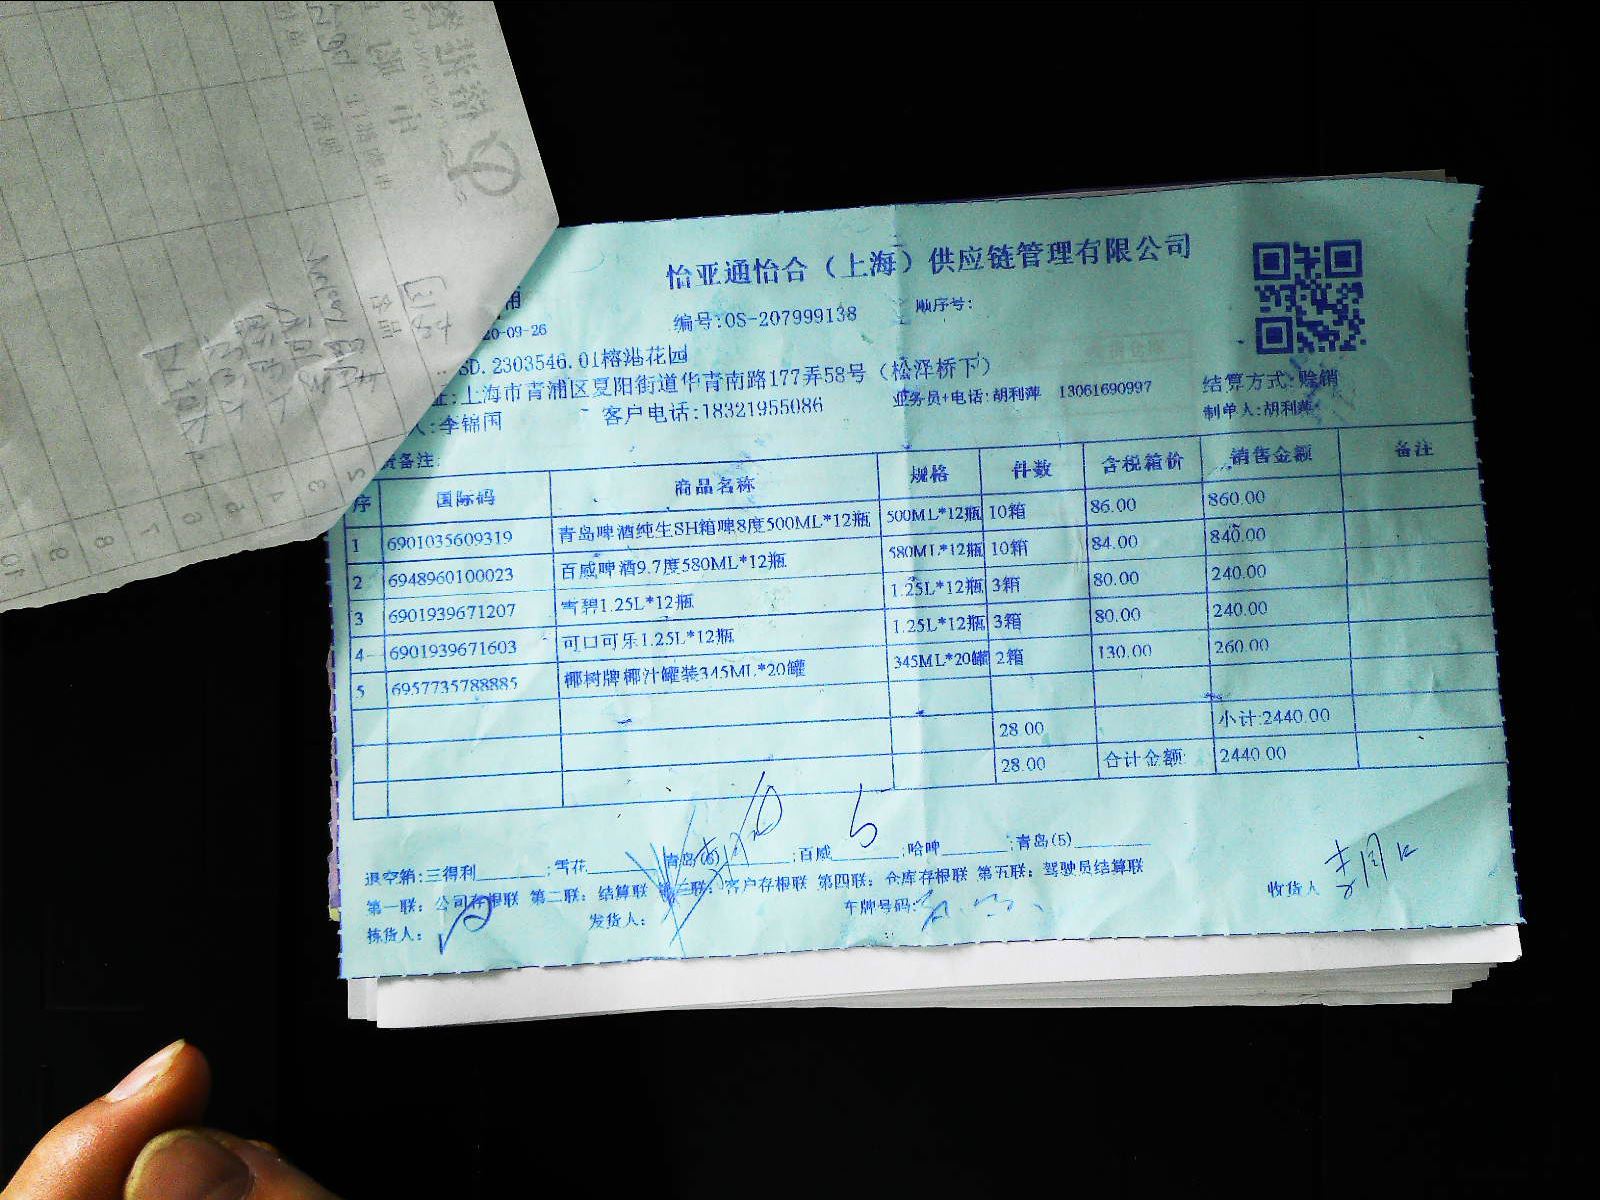 怡亚通怡合（上海）供应链管理有限公司
编号:OS-207999138 顺序号:
20-09-26
SD.2303546.01榕港花园
:上海市青浦区夏阳街道华青南路177弄58号（松泽桥下）
人:李锦国 客户电话:18321955086 业务员+电话:胡利萍 13061690997
结算方式:赊销
制单人:胡利萍
备注:
序 国际码 商品名称 规格 件数 含税箱价 销售金额 备注
1 6901035609319 青岛啤酒纯生SH箱啤8度500ML*12瓶 500ML*12瓶 10箱 86.00 860.00
2 6948960100023 百威啤酒9.7度580ML*12瓶 580ML*12瓶 10箱 84.00 840.00
3 6901939671207 雪碧1.25L*12瓶 1.25L*12瓶 3箱 80.00 240.00
4 6901939671603 可口可乐1.25L*12瓶 1.25L*12瓶 3箱 80.00 240.00
5 6957735788885 椰树牌椰汁罐装345ML*20罐 345ML*20罐 2箱 130.00 260.00
28.00 小计:2440.00
28.00 合计金额: 2440.00
退空箱:三得利______;雪花______青岛(6)______;百威 5 ;哈啤______;青岛(5)______
第一联：公司存根联 第二联：结算联 第三联：客户存根联 第四联：仓库存根联 第五联：驾驶员结算联
拣货人： 发货人： 车牌号码: 收货人